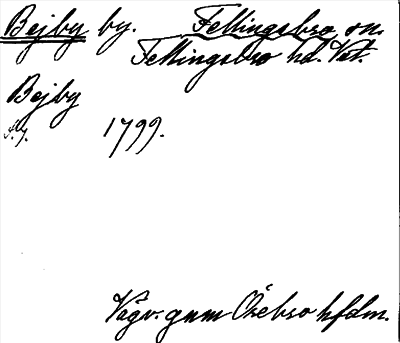 Bejby by. Fellingsbro sn.
Fellingsbro hd. Vstm.
Bejby
1799.
Vägv. gnm Örebro hfdm.